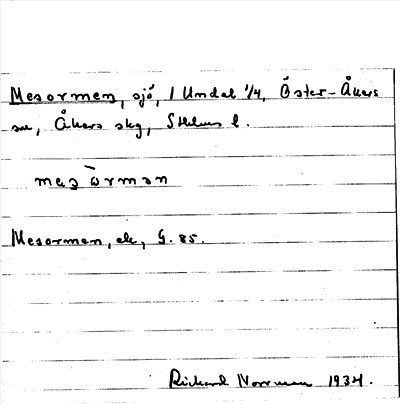 Mesormen, sjö, 1 Undal 1/4, Öster-Åkers
sn, Åkers skg, Sthlms l.
mesormen
Mesormen, ek, G. 85.
Richard Norrman 1934.